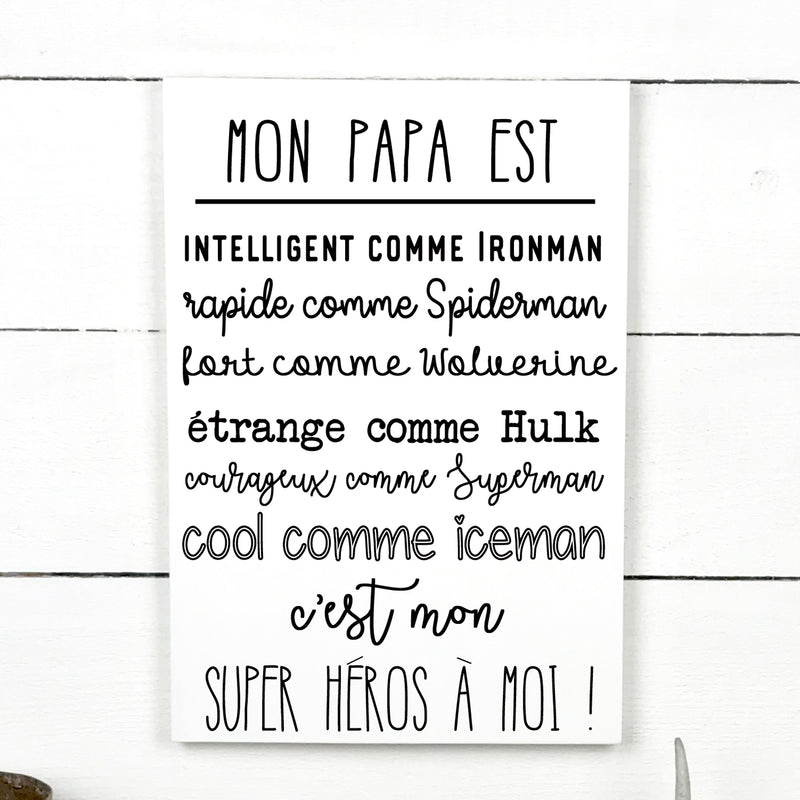 MON PAPA EST
INTELLIGENT COMME IRONMAN
rapide comme Spiderman
fort comme Wolverine
étrange comme Hulk
courageux comme Superman
cool comme iceman
c'est mon
SUPER HÉROS À MOI !